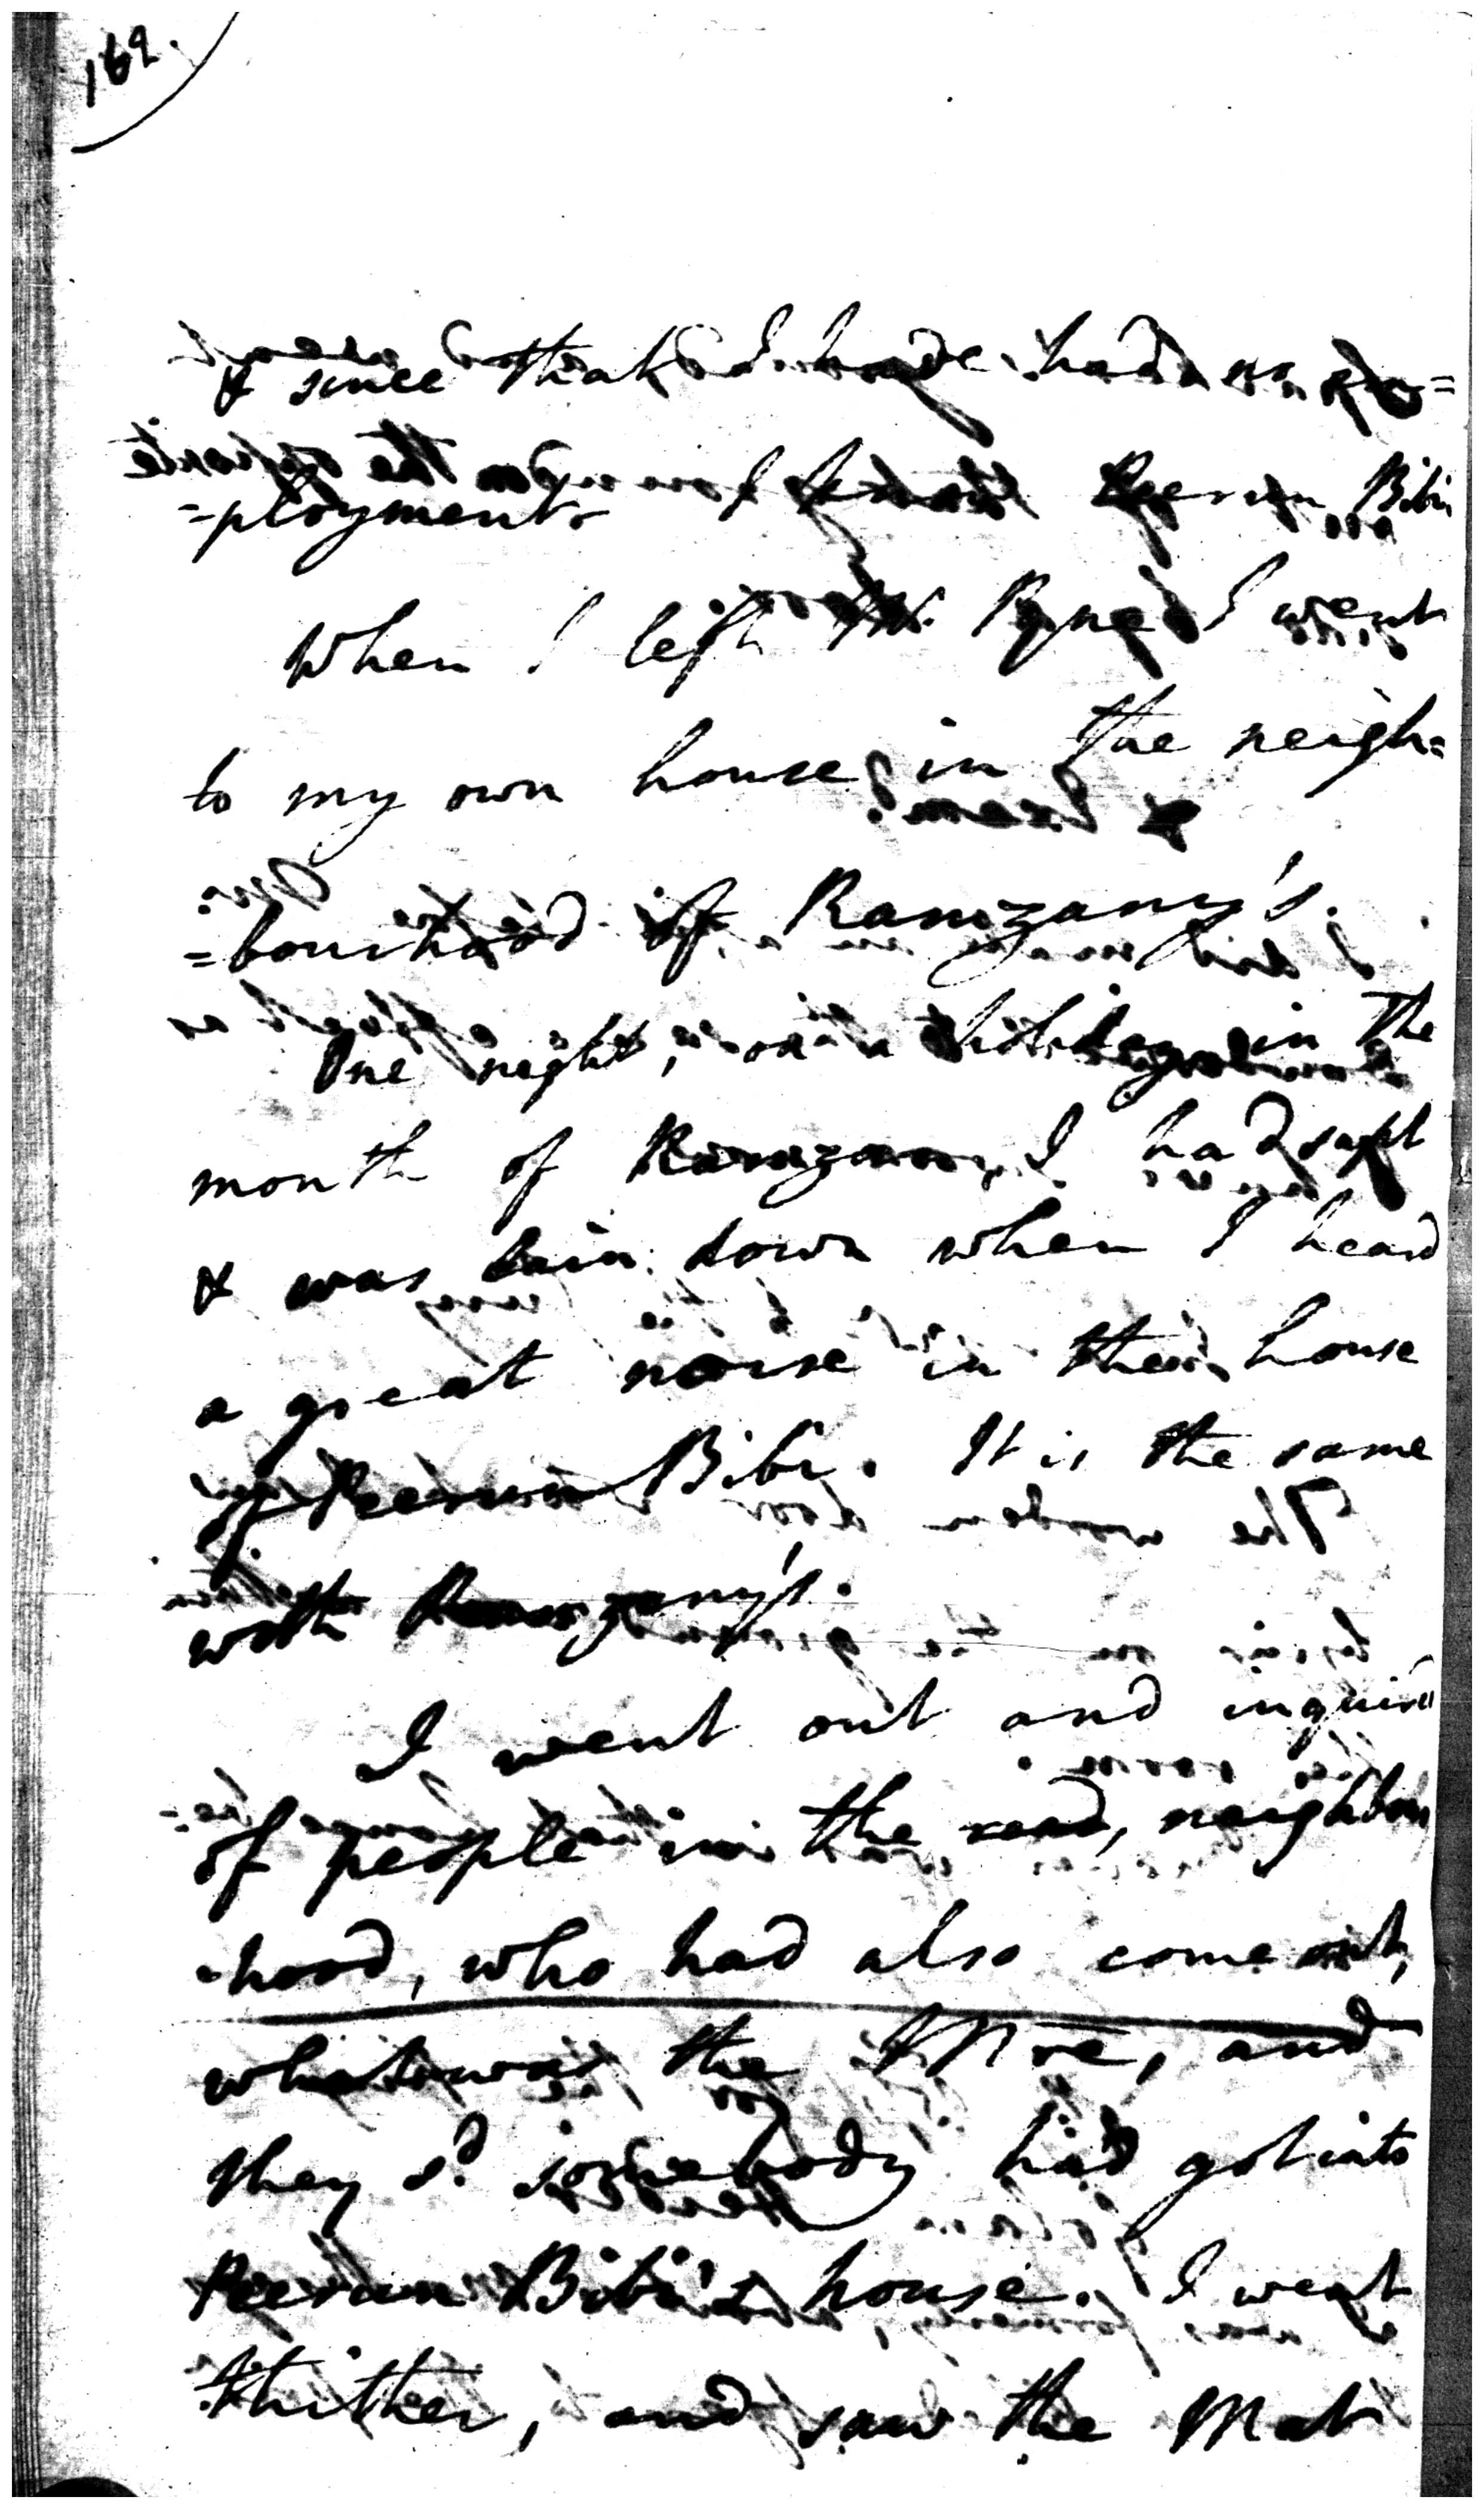 169.
& since that I have had no em=
=ployment. I know Peerun Bibi
When I left Mr. Pyne I went
to my own house in the neigh=
=bourhood of Ramzany's.
One night, on a holiday in the
month of Ramzan, I had supt
& was lain down when I heard
a great noise in the house
of Peerun Bibi. It is the same
with Ramzany's.
I went out and inquired
of people in the road, neighbour
-hood, who had also come out,
what was the and
they sd. somebody had got into
Peerun Bibi's house. I went
thither, and saw the Mat